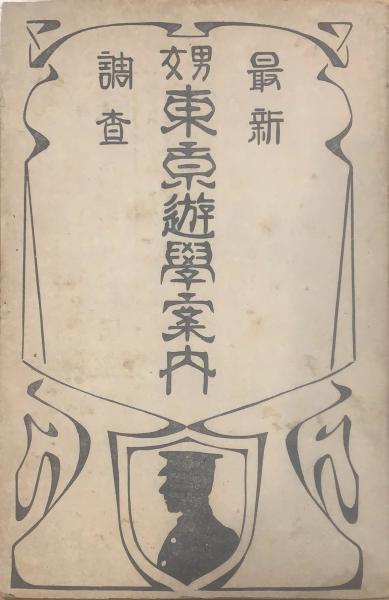 最新
男女東京遊學案内
調査